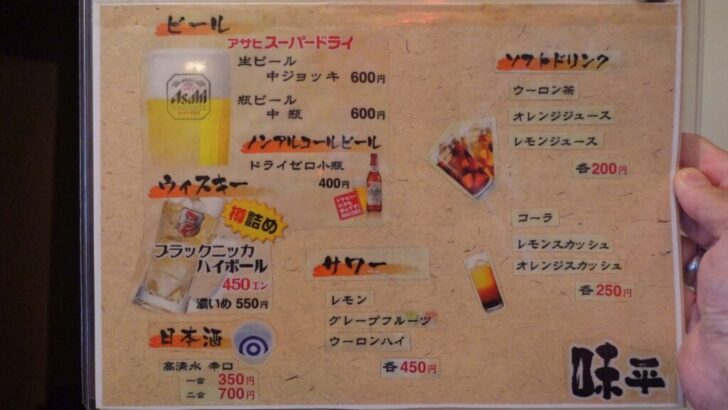 ビール
アサヒスーパードライ
生ビール
中ジョッキ 600円
瓶ビール
中瓶 600円
Asahi
ノンアルコールビール
ドライゼロ小瓶
400円
ウィスキー
樽詰め
ブラックニッカ
ハイボール
450エン
濃いめ 550円
日本酒
高清水 辛口
一合 350円
二合 700円
サワー
レモン
グレープフルーツ
ウーロンハイ
各450円
ソフトドリンク
ウーロン茶
オレンジジュース
レモンジュース
各200円
コーラ
レモンスカッシュ
オレンジスカッシュ
各250円
味平